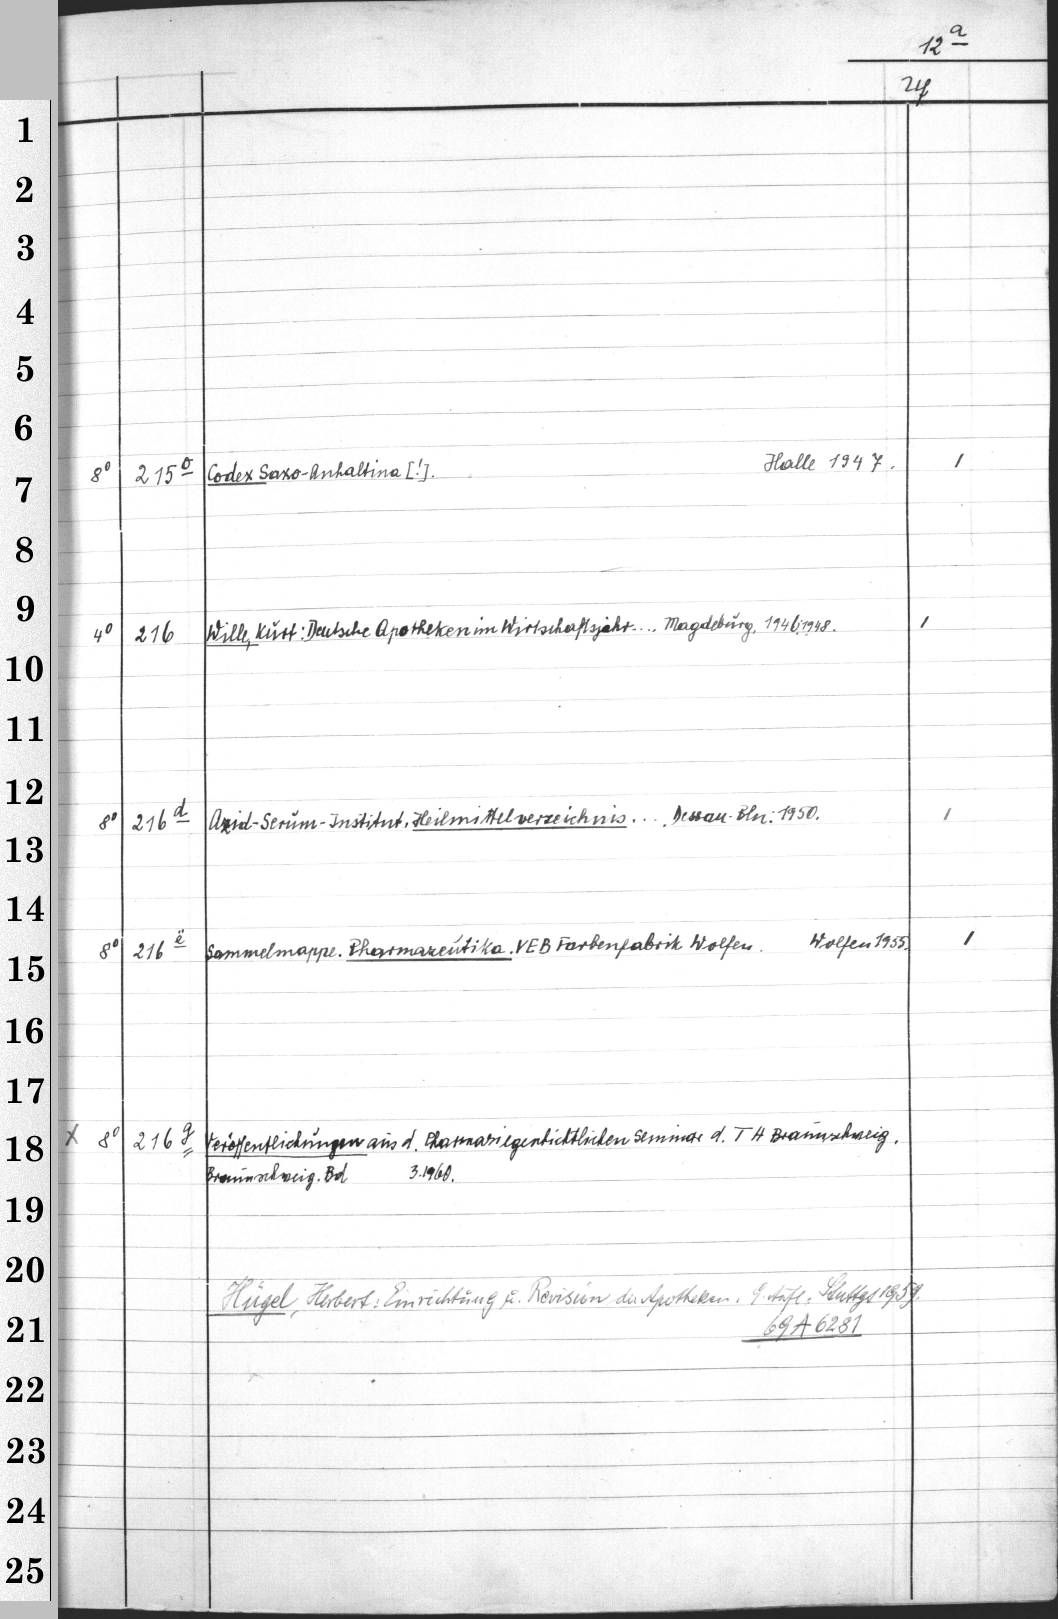 12 a
24
1
2
3
4
5
6
7
8° 215 o Codex Saxo-Anhaltina [!]. Halle 1947. 1
8
9
4° 216 Wille, Kurt: Deutsche Apotheken im Wirtschaftsjahr.... Magdeburg, 1946;1948. 1
10
11
12
8° 216 d Asid-Serum-Institut. Heilmittelverzeichnis.... Dessau-Bln: 1950. 1
13
14
8° 216 e Sammelmappe. Pharmazeutika. VEB Farbenfabrik Wolfen. Wolfen 1955. 1
15
16
17
18
x 8° 216 g Veröffentlichungen aus d. Pharmaziegeschichtlichen Seminar d. TH Braunschweig.
Braunschweig. Bd 3.1960.
19
20
Hügel, Herbert: Einrichtung u. Revision der Apotheken. Aufl. Stuttg 1959.
69 A 6281
21
22
23
24
25